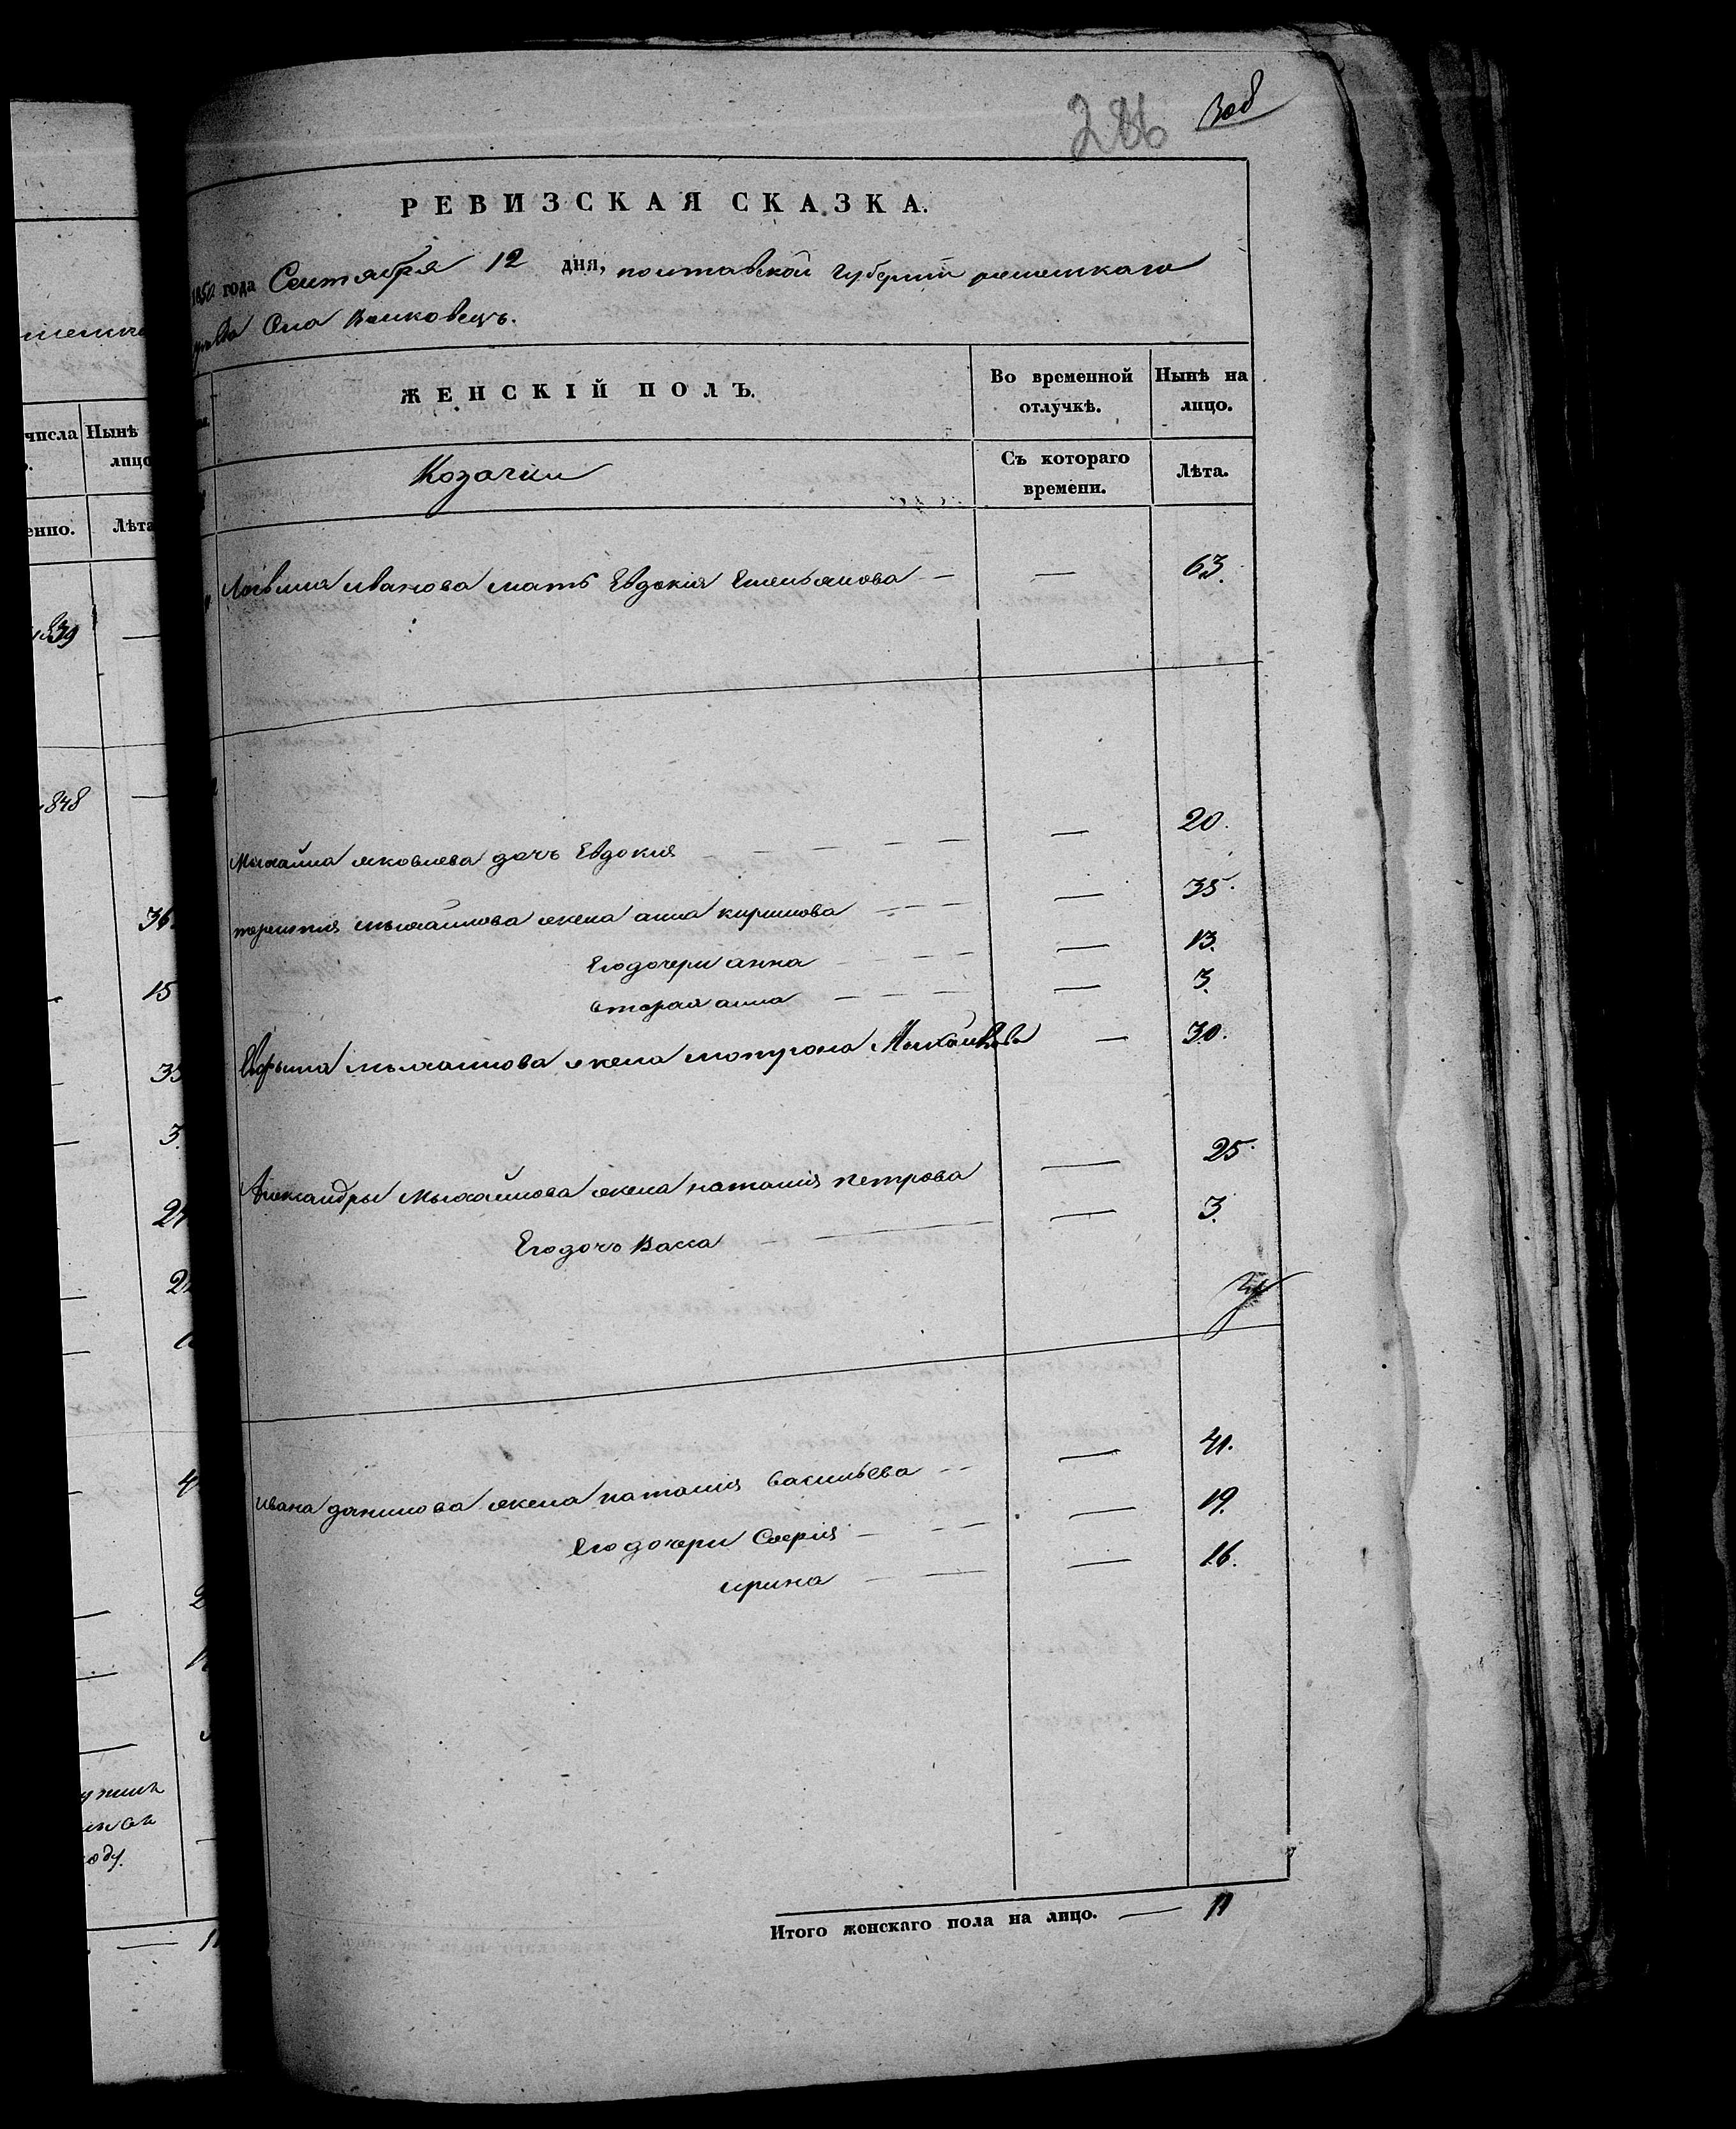 286 308
РЕВИЗСКАЯ СКАЗКА.
1850 года Сентября 12 дня, полтавской губернии
Села Волковецъ.
ЖЕНСКІЙ ПОЛЪ.
Во временной отлучкѣ.
Нынѣ на лицо.
Козачки
Съ котораго времени.
Лѣта.
иванова мать Евдокия Емельянова — — 63.
Михайла яковлева дочь Евдокия — — — — — 20.
терентия михайлова жена анна кирилова — — — — 35.
Его дочери анна — — — — 13.
вторая анна — — — — 3.
михайлова жена мотрона Михайлова — 30.
Александры Михайлова жена наталия петрова — 25.
Его дочь Васса — — — 3.
Ивана данилова жена наталия васильева — — — 41.
Его дочери София — — — — 19.
ирина — — — 16.
Итого женскаго пола на лицо. — 11
числа
Нынѣ
лицо
енно.
Лѣта
1839 —
1848 —
36
15
35
3.
оду.